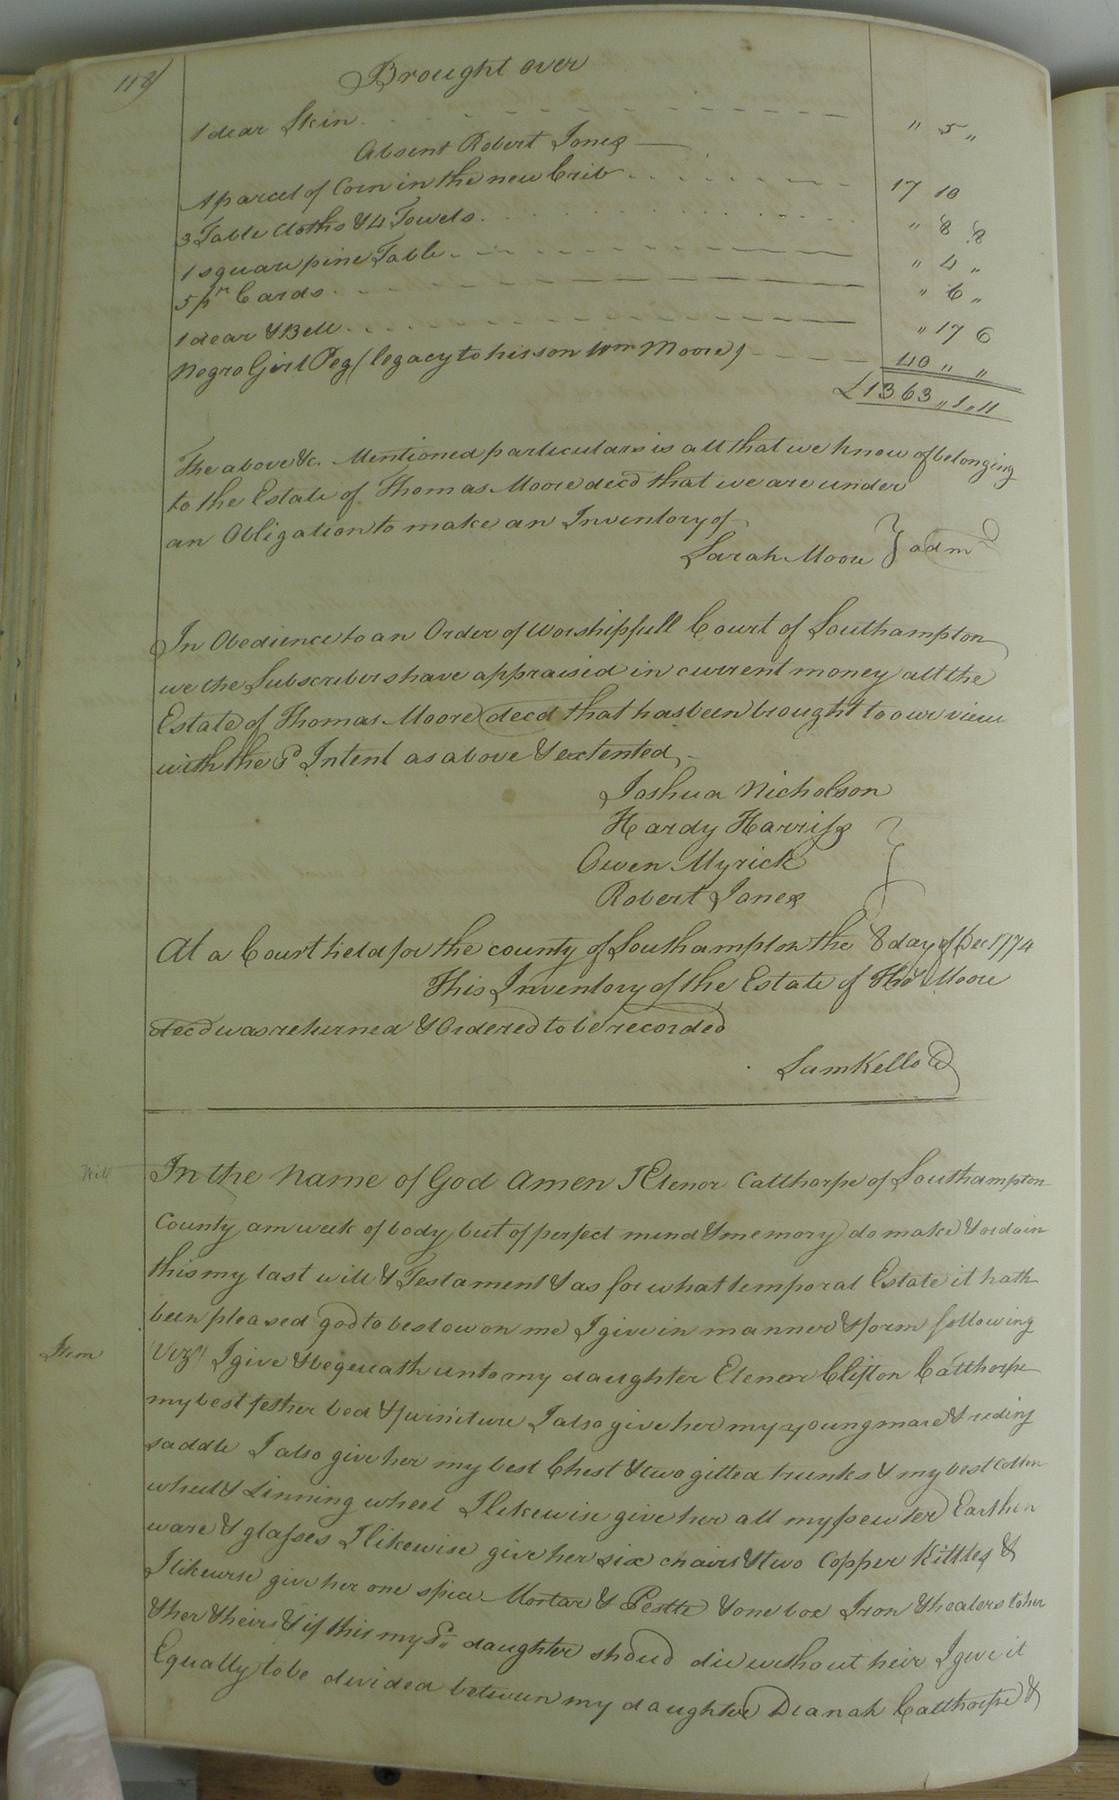 118)
Brought over
1 dear Skin " 5 "
Absent Robert Jones
A parcel of Corn in the new Crib 17 10
3 Table Cloths & 4 Towels " 8 8
1 square pine Table " 4 "
5 pr Cards " 6 "
1 dear & Bell " 17 6
Negro Girl Peg (legacy to his son Wm Moore) 40 " "
£1363 " 1 " 11
The above &c. Mentioned particulars is all that we know of belonging
to the Estate of Thomas Moore decd that we are under
an Obligation to make an Inventory of
Sarah Moore } adm
In Obedience to an Order of Worshipfull Court of Southampton
we the Subscribers have appraised in current money all the
Estate of Thomas Moore decd that has been brought to our view
with the Intent as above & extented
Joshua Nicholson
Hardy Harriss
Owen Myrick
Robert Jones
At a Court held for the county of Southampton the 8 day of Dec 1774
This Inventory of the Estate of Tho Moore
decd was returned & Ordered to be recorded
Sam Kello
Will
In the Name of God Amen I Elenor Callthorpe of Southampton
County am week of body but of perfect mind & memory do make & ordain
this my last will & Testament & as for what temporal Estate it hath
been pleased god to bestow on me I give in manner & form following
Item
Vizt I give & bequeath unto my daughter Elenor Clifton Callthorpe
my best fether bed & furniture I also give her my young mare & reding
saddle I also give her my best Chest & two gilted trunks & my best Cotten
wheel & Linning wheel I likewise give her all my pewter Earthen
ware & glasses I likewise give her six chairs & two Copper Kittles &
I likewise give her one spice Mortar & Pestle & one box Iron & heaters to her
& her heirs & if this my Sd daughter should die without heir I give it
Equally to be divided between my daughter Dianah Callthorpe &